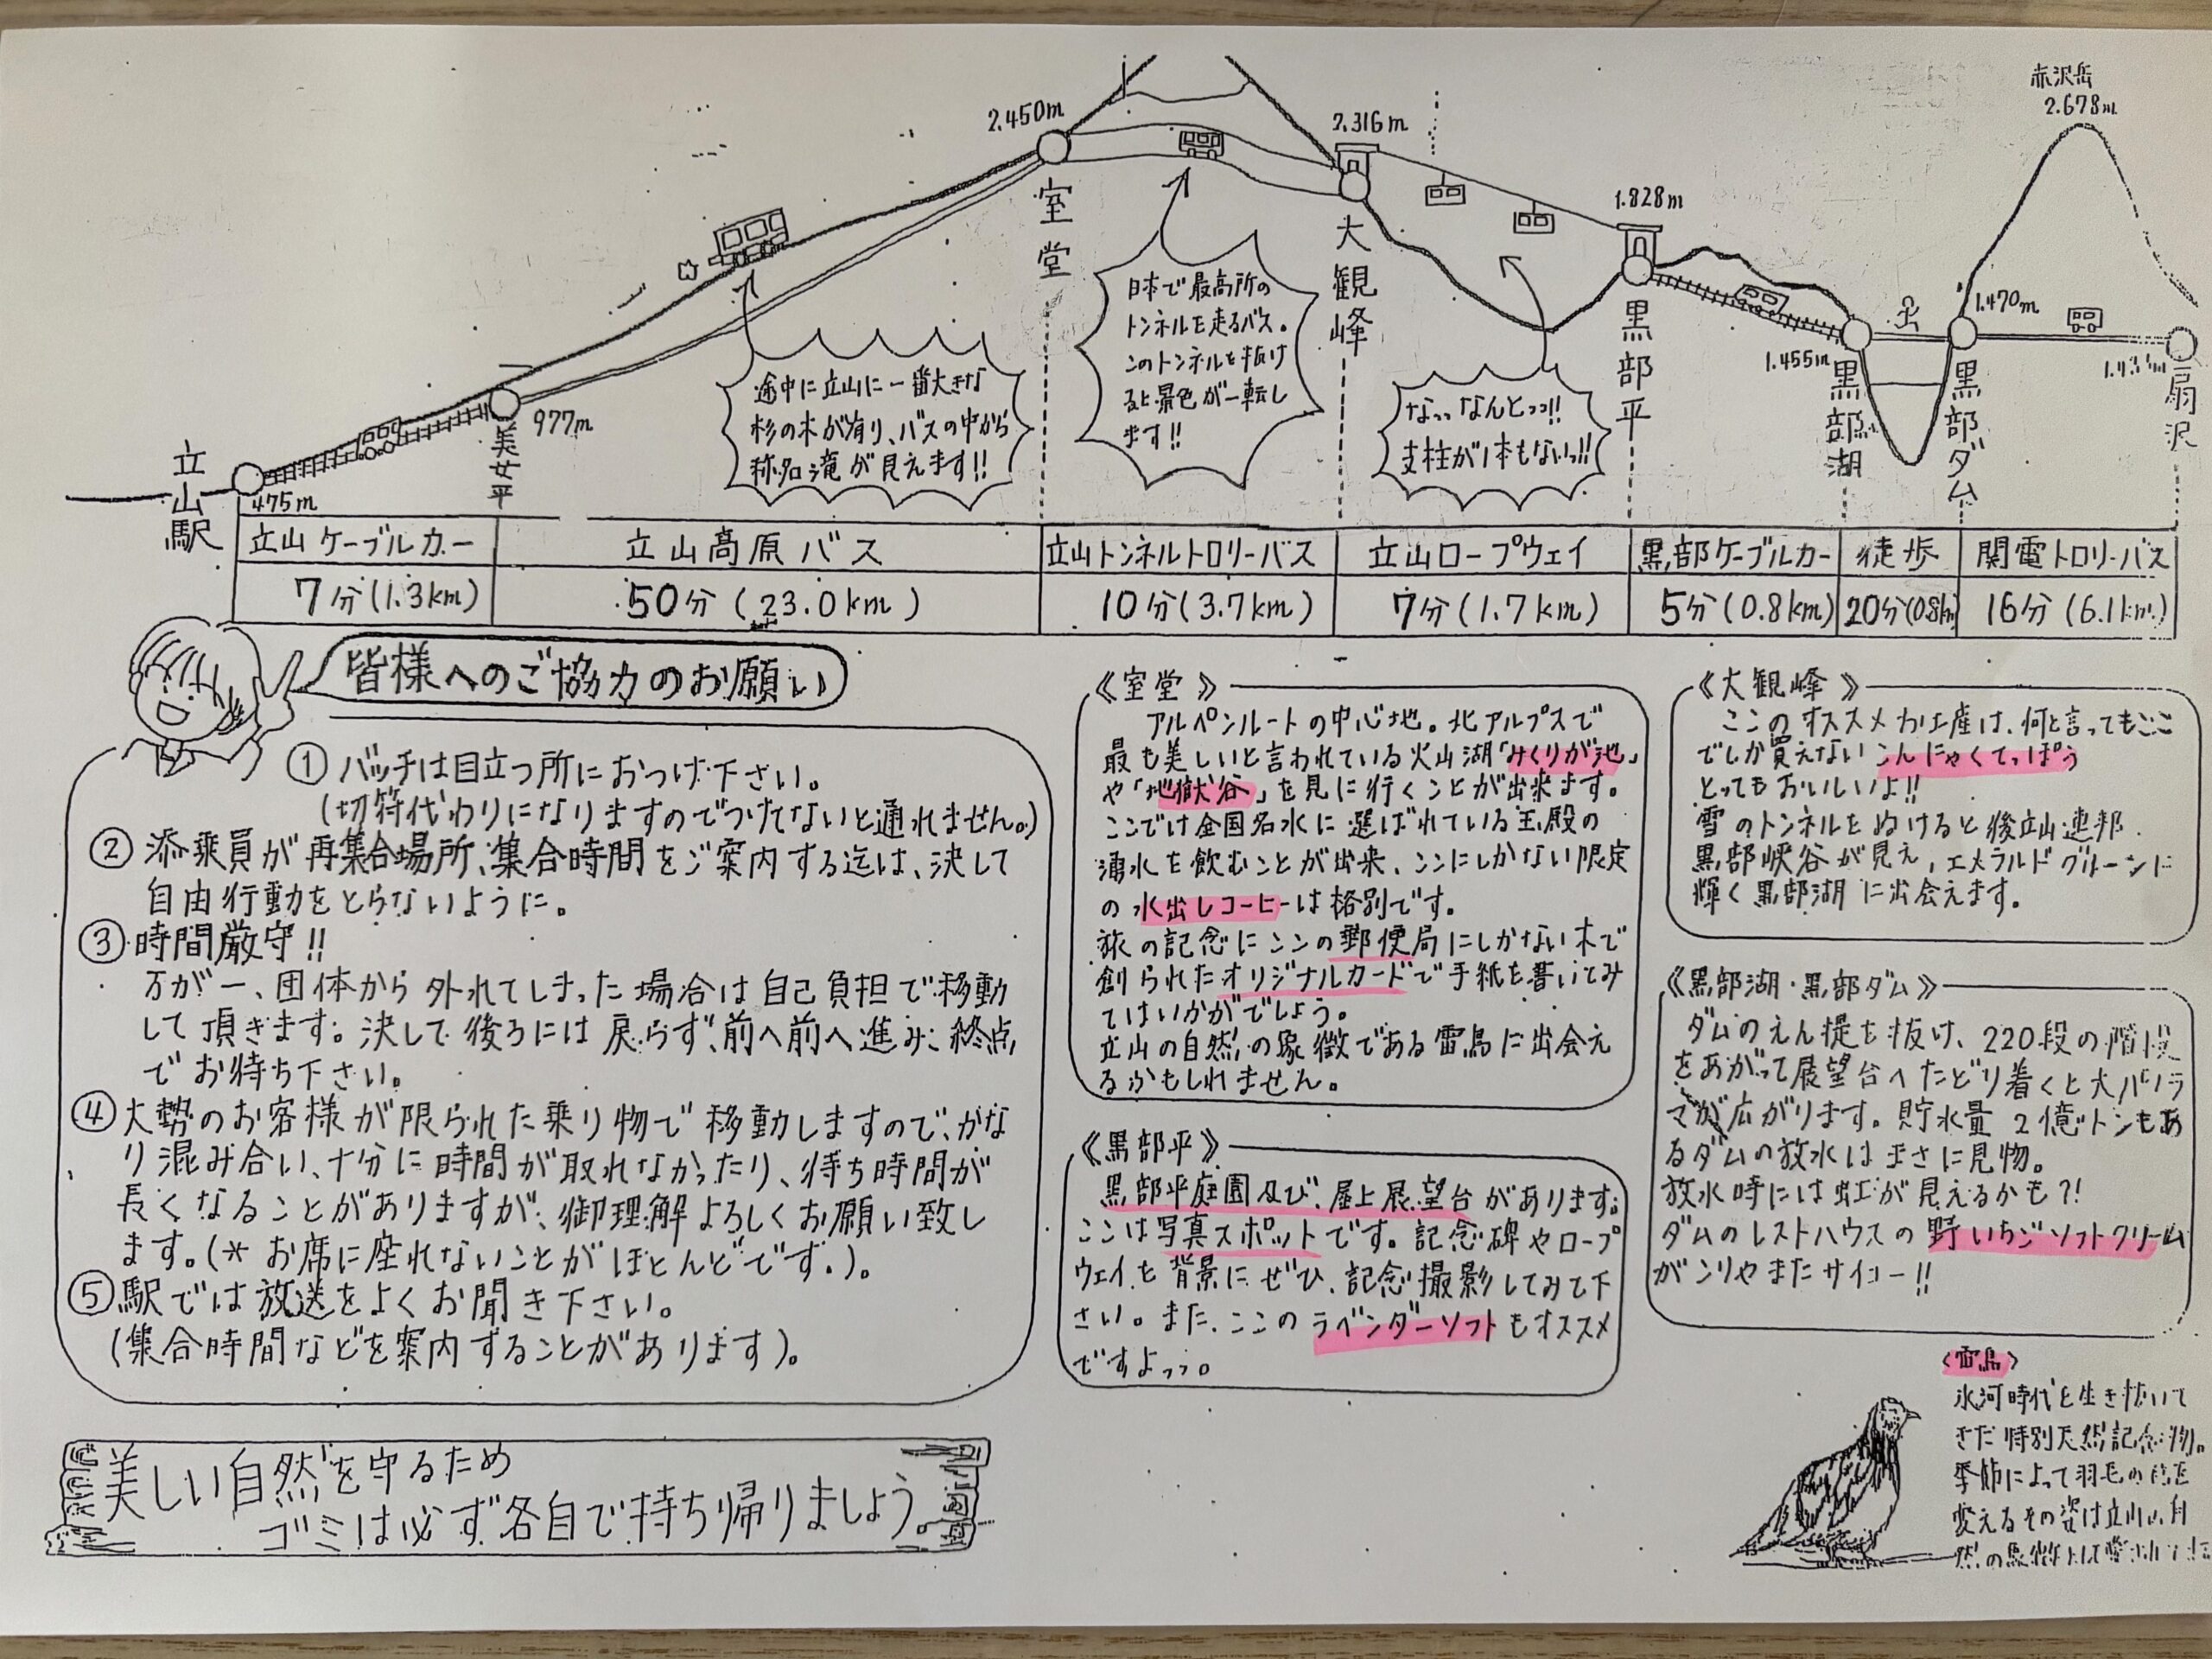 赤沢岳
2.678m
2.450m
2.316m
1.828m
1.470m
1.455m
977m
475m
立山駅
美女平
室堂
大観峰
黒部平
黒部湖
黒部ダム
扇沢
途中に立山に一番大きな
杉の木が有り、バスの中から
称名滝が見えます!!
日本で最高所の
トンネルを走るバス。
このトンネルを抜け
ると景色が一転し
ます!!
なっなんとっっ!!
支柱が1本もないっ!!
立山ケーブルカー 立山高原バス 立山トンネルトロリーバス 立山ロープウェイ 黒部ケーブルカー 徒歩 関電トロリーバス
7分(1.3km) 50分(23.0km) 10分(3.7km) 7分(1.7km) 5分(0.8km) 20分(0.8km) 16分(6.1km)
皆様へのご協力のお願い
① バッチは目立つ所におつけ下さい。
(切符代わりになりますのでつけてないと通れません。)
② 添乗員が再集合場所、集合時間をご案内する迄は、決して
自由行動をとらないように。
③ 時間厳守!!
万が一、団体から外れてしまった場合は自己負担で移動
して頂きます。決して後ろには戻らず、前へ前へ進み、終点
でお待ち下さい。
④ 大勢のお客様が限られた乗り物で移動しますので、かな
り混み合い、十分に時間が取れなかったり、待ち時間が
長くなることがありますが、御理解よろしくお願い致し
ます。(* お席に座れないことがほとんどです。)。
⑤ 駅では放送をよくお聞き下さい。
(集合時間などを案内することがあります)。
美しい自然を守るため
ゴミは必ず各自で持ち帰りましょう。
《室堂》
アルペンルートの中心地。北アルプスで
最も美しいと言われている火山湖「みくりが池」
や「地獄谷」を見に行くことが出来ます。
ここでは全国名水に選ばれている玉殿の
湧水を飲むことが出来、ここにしかない限定
の水出しコーヒーは格別です。
旅の記念にここの郵便局にしかない木で
創られたオリジナルカードで手紙を書いてみ
てはいかがでしょう。
立山の自然の象徴である雷鳥に出会え
るかもしれません。
《黒部平》
黒部平庭園及び、屋上展望台があります。
ここは写真スポットです。記念碑やロープ
ウェイを背景にぜひ、記念撮影してみて下
さい。また、ここのラベンダーソフトもオススメ
ですよっっ。
《大観峰》
ここのオススメお土産は、何と言ってもここ
でしか買えないこんにゃくてっぽう
とってもおいしいよ!!
雪のトンネルをぬけると後立山連邦、
黒部峡谷が見え、エメラルドグリーンに
輝く黒部湖に出会えます。
《黒部湖・黒部ダム》
ダムのえん堤を抜け、220段の階段
をあがって展望台へたどり着くと大パノラ
マが広がります。貯水量 2億トンもあ
るダムの放水はまさに見物。
放水時には虹が見えるかも?!
ダムのレストハウスの野いちごソフトクリーム
がこりゃまたサイコー!!
〈雷鳥〉
氷河時代を生き抜いて
きた特別天然記念物。
季節によって羽毛の色を
変えるその姿は立山の自
然の象徴として